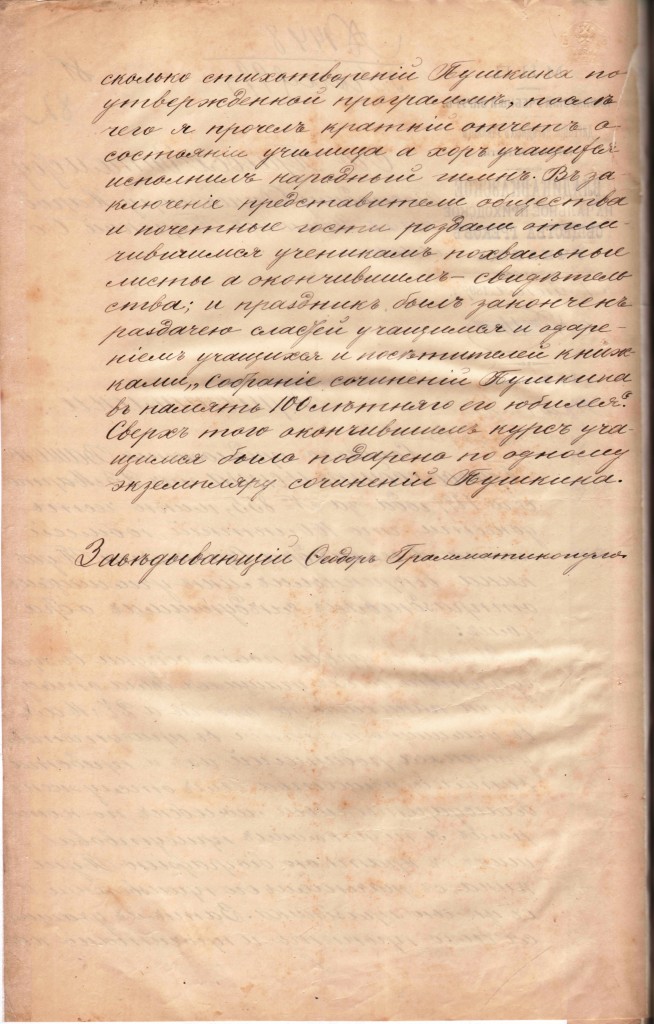 сколько стихотвореній Пушкина по
утвержденной программѣ, послѣ
чего я прочелъ краткій отчетъ о
состояніи училища а хоръ учащихся
исполнилъ народный гимнъ. Въ за-
ключеніе представители общества
и почетные гости роздали отли-
чившимся ученикамъ похвальные
листы а окончившимъ — свидѣтель
ства; и праздникъ былъ законченъ
раздачею сластей учащимся и одаре-
ніемъ учащихся и посѣтителей книж-
ками „Собраніе сочиненій Пушкина
въ память 100 лѣтняго его юбилея“.
Сверхъ того окончившимъ курсъ уча-
щимся было подарено по одному
экземпляру сочиненій Пушкина.
Завѣдывающій Сидоръ Грамматикопуло